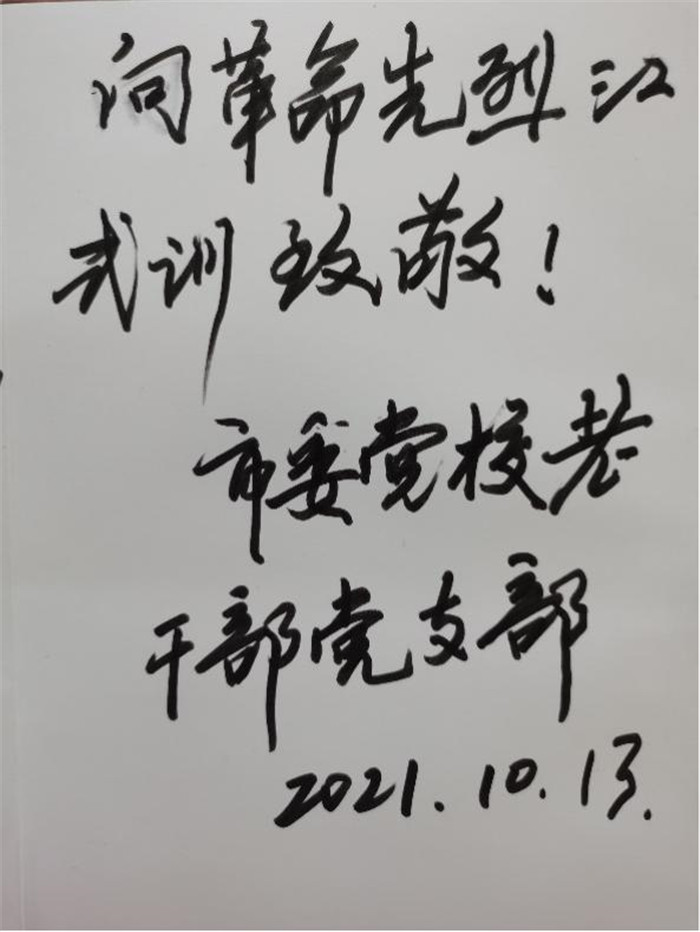 向革命先烈江
式训致敬！
市委党校老
干部党支部
2021.10.13.